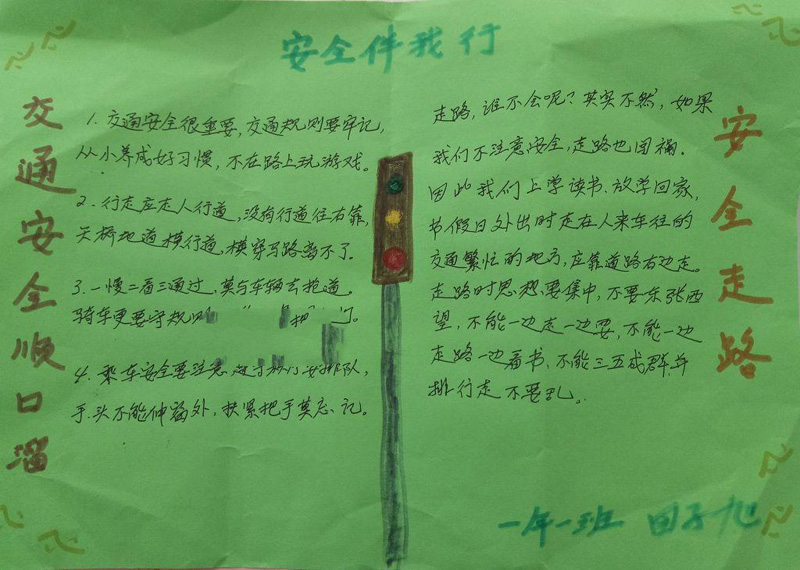 安全伴我行
交通安全顺口溜
1. 交通安全很重要,交通规则要牢记,
从小养成好习惯,不在路上玩游戏。
2. 行走应走人行道,没有行道往右靠,
天桥地道横行道,横穿马路当不了.
3. 一慢二看三通过,莫与车辆去抢道.
骑车更要守规
4. 乘车安全要注意 队,
手、头不能伸窗外,扶紧把手莫忘记。
安全走路
走路,谁不会呢?其实不然,如果
我们不注意安全,走路也闯祸.
因此我们上学读书、放学回家,
节假日外出时走在人来车往的
交通繁忙的地方,应靠道路右边走。
走路时思想要集中,不要东张西
望,不能一边走一边耍,不能一边
走路一边看书,不能三五成群并
排行走 不要乱.
一年一班 回子旭